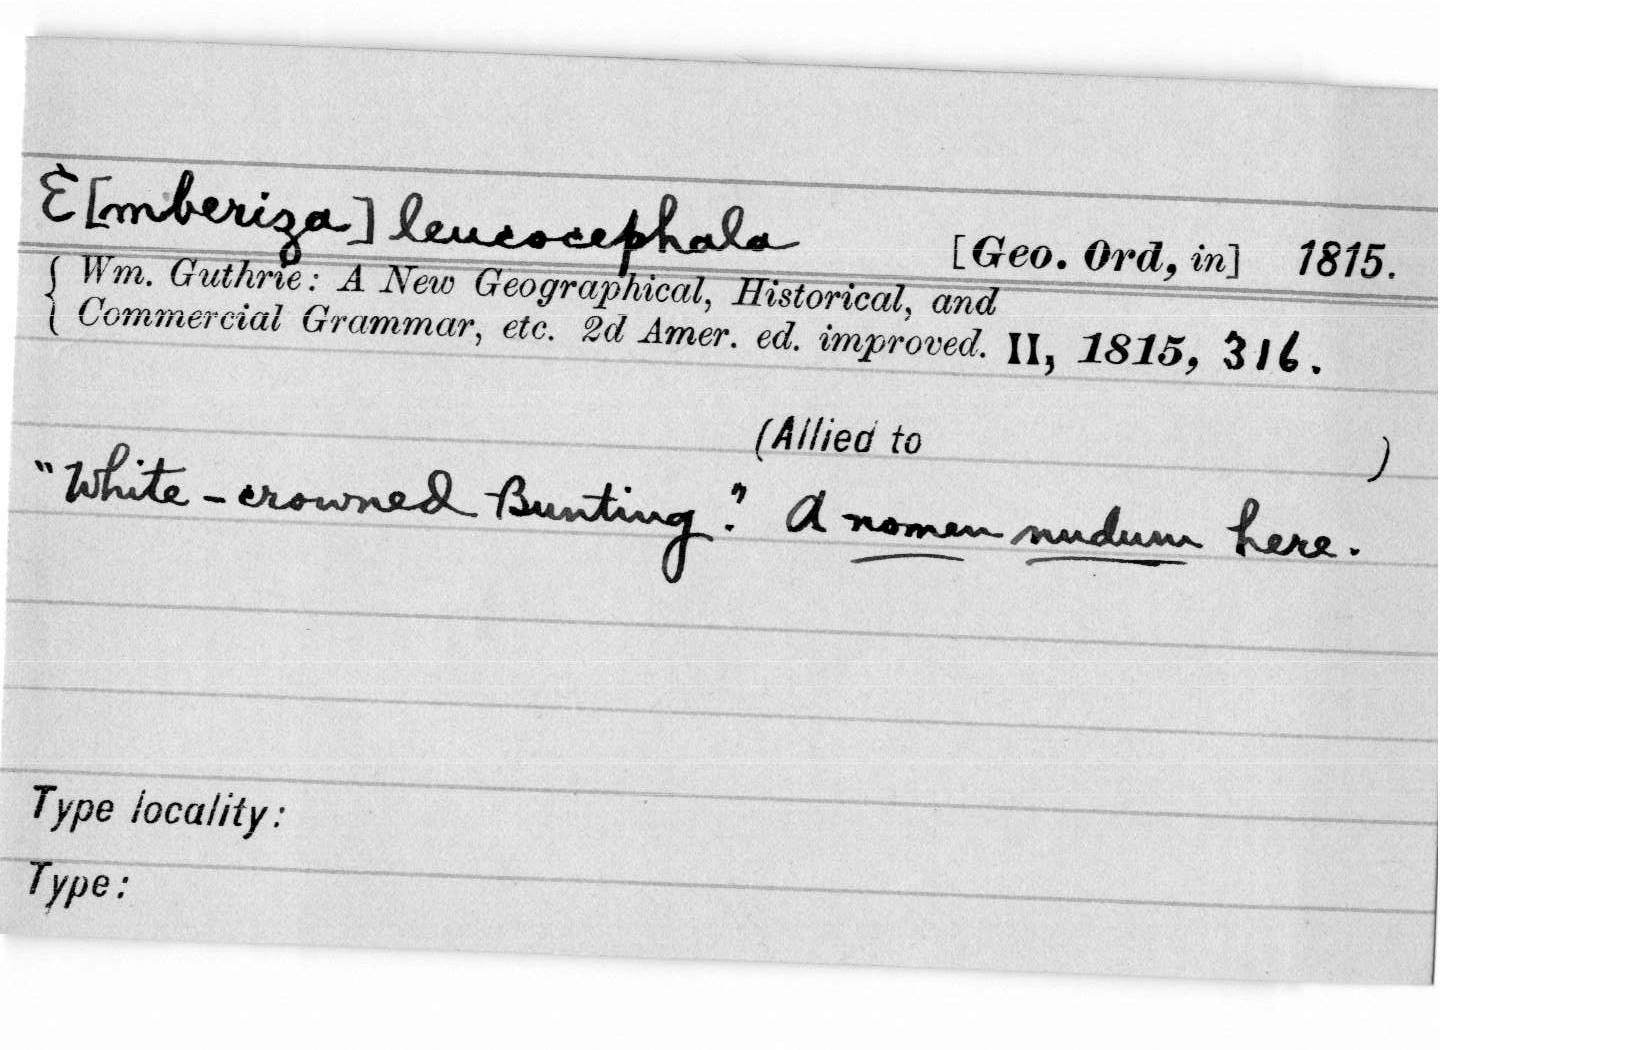 E[mberiza] leucocephala [Geo. Ord, in] 1815.
{ Wm. Guthrie: A New Geographical, Historical, and
Commercial Grammar, etc. 2d Amer. ed. improved. II, 1815, 316.
(Allied to )
"White-crowned Bunting." A nomen nudum here.
Type locality:
Type: